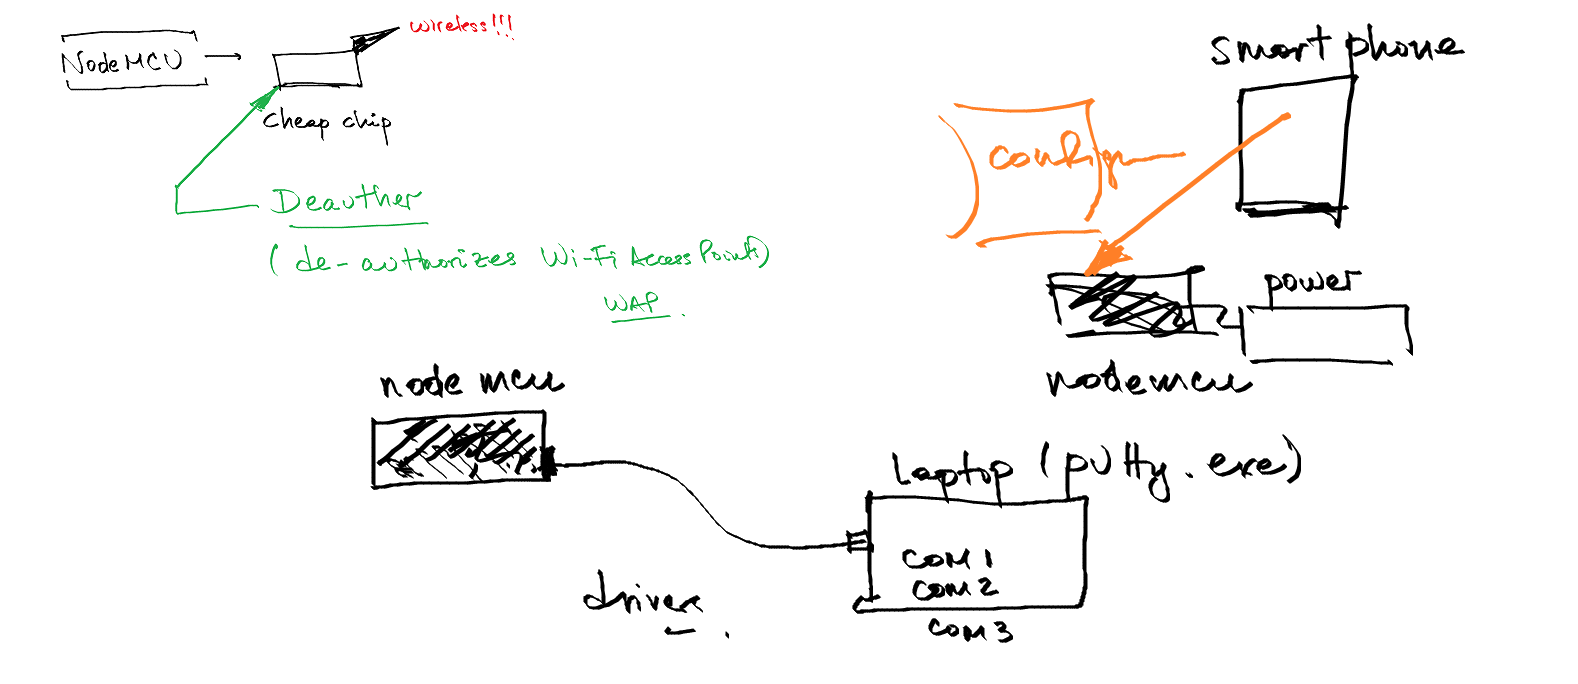 NodeMCU
wireless!!!
cheap chip
Deauther
(de-authorizes Wi-Fi Access Points)
WAP.
smart phone
config
power
nodemcu
node mcu
Laptop (putty.exe)
COM 1
COM 2
COM 3
driver.